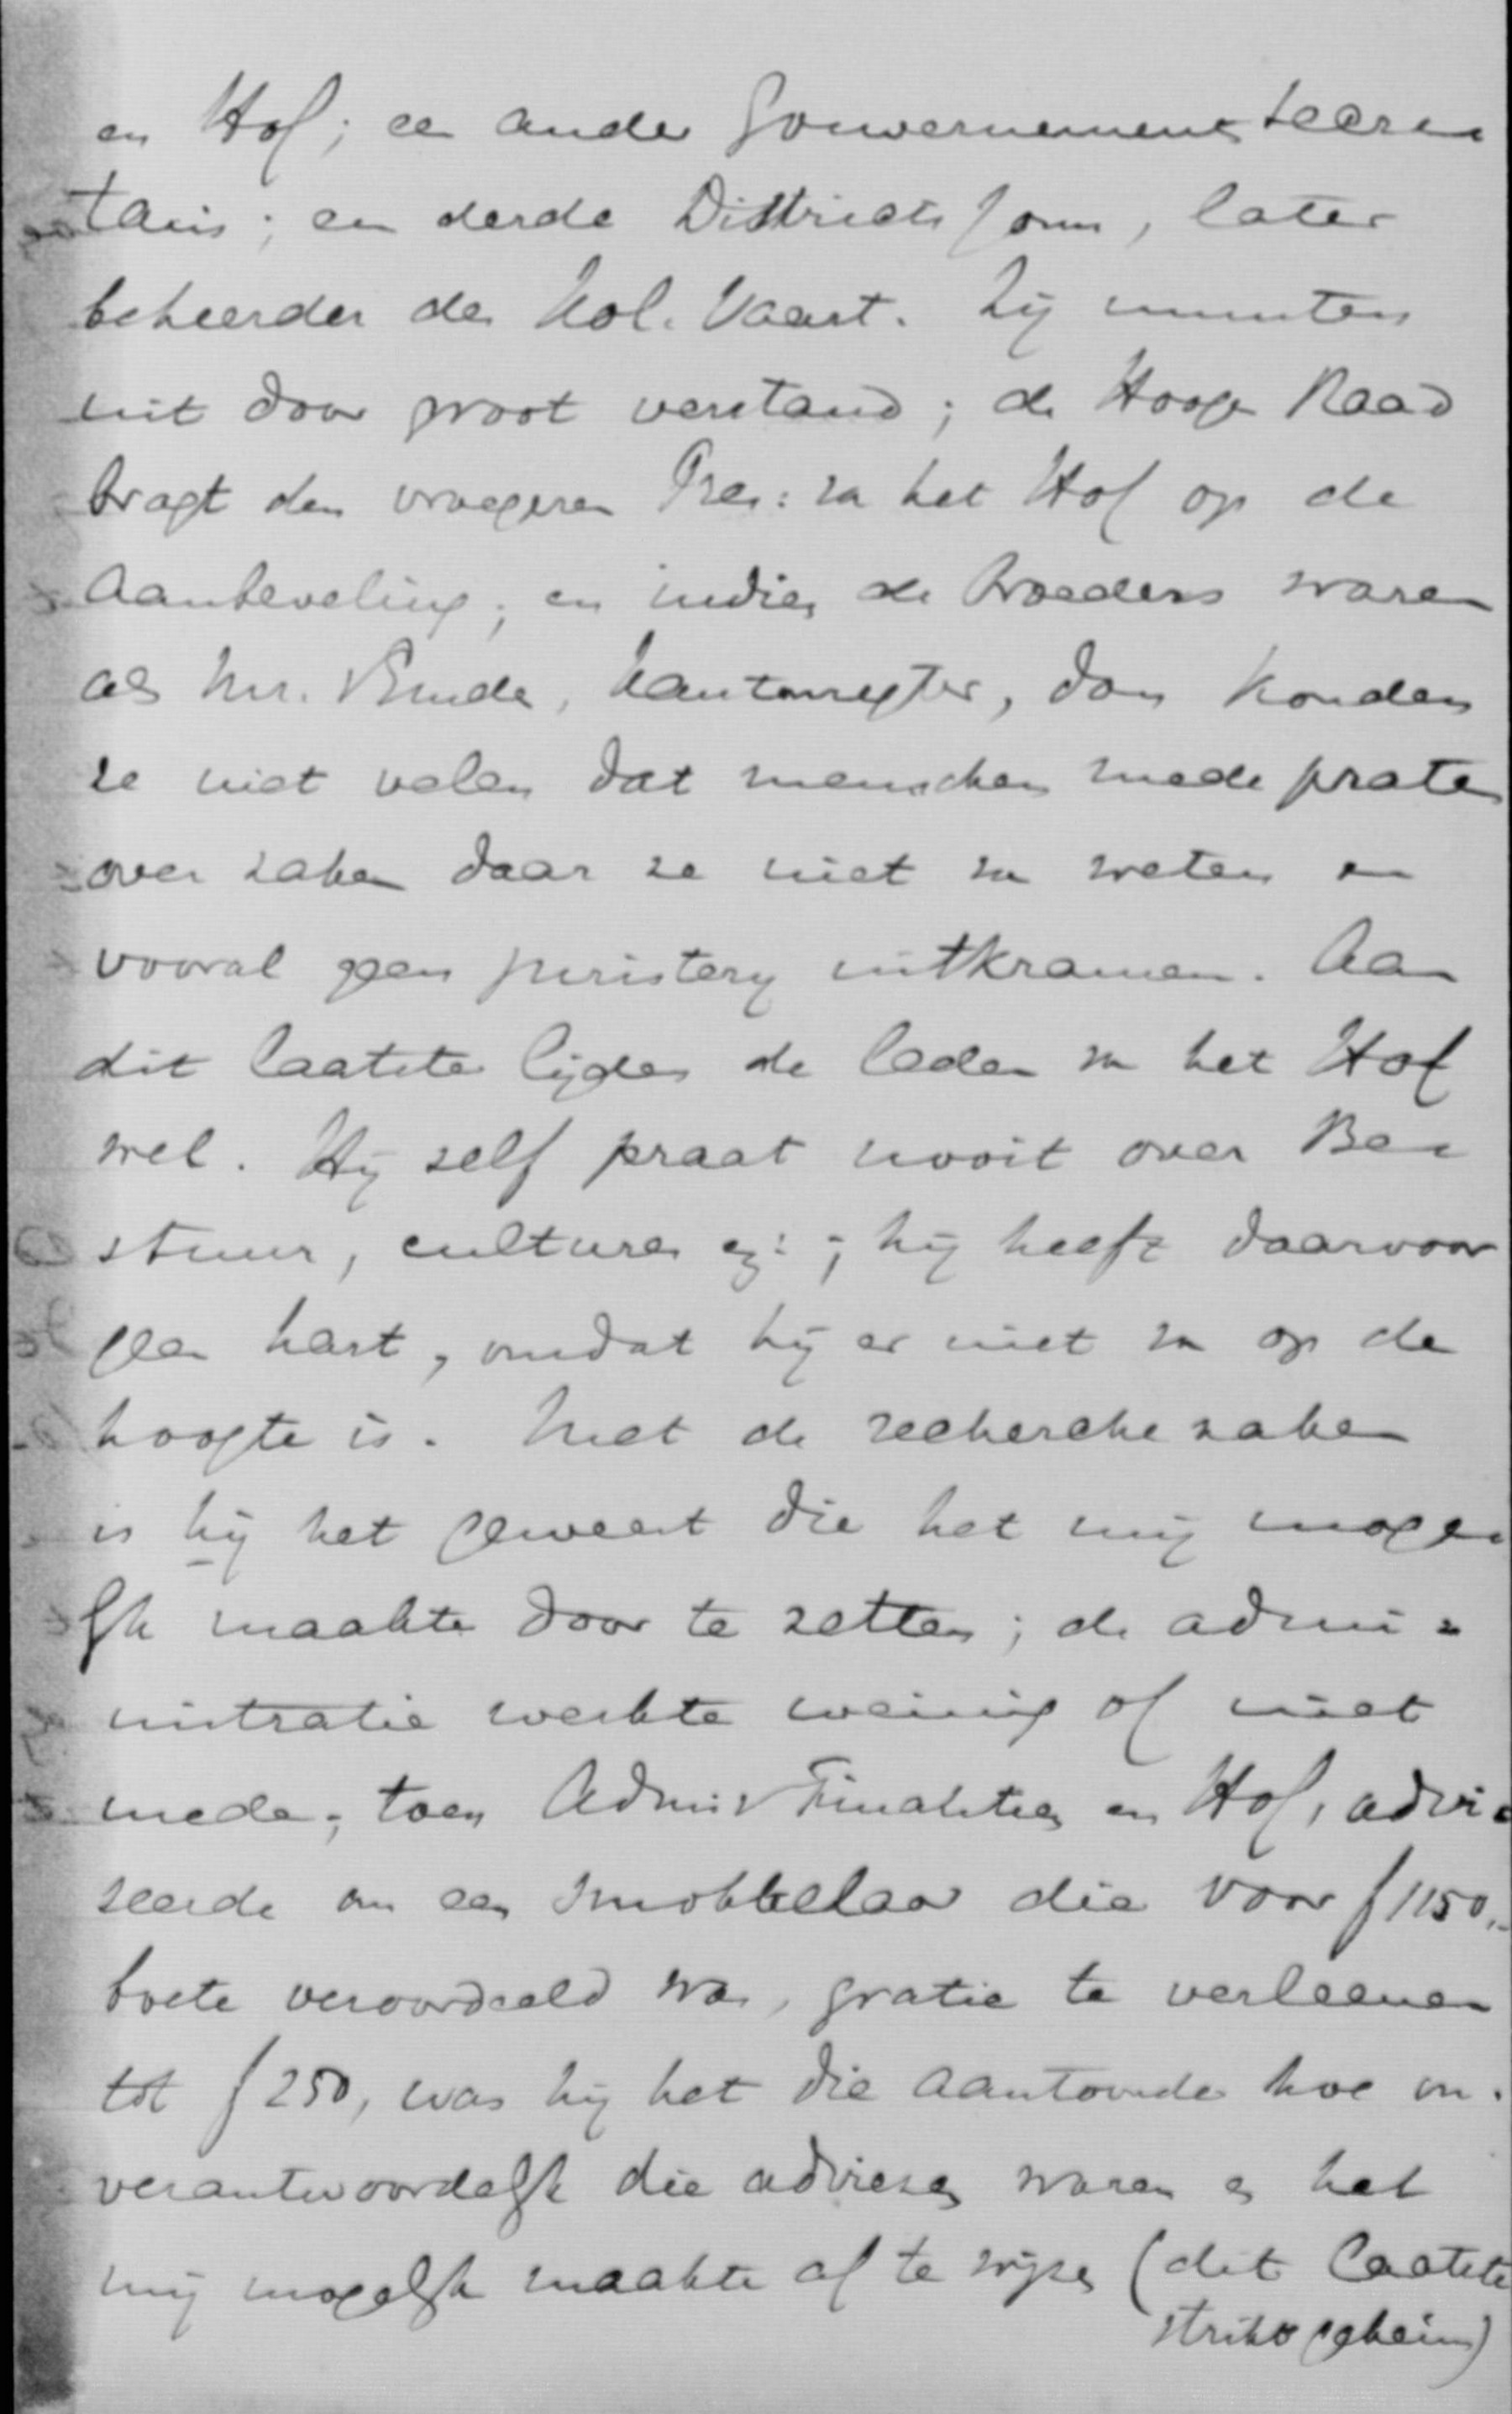 en Hof; een ander Gouvernements secre
taris; een derde Districts Comm, later
beheerder der Kol. Vaart. Zij munten
uit door groot verstand; de Hooge Raad
bragt den vroegeren Pres: va het Hof op de
aanbeveling; en indien de broeders waren
als Mr. Kantonregter, dan konden
ze niet velen dat menschen mede praten
over zaken daar ze niet va weten en
vooral geen juristery uitkramen. Aan
dit laatste lijden de leden va het Hof
wel. Hij zelf praat nooit over Be=
stuur, cultures ez: ; hij heeft daarvoor
geen hart, omdat hij er niet va op de
hoogte is. Met de recherche zaken
is hij het geweest die het mij moge=
lijk maakte door te zetten; de admi=
nistratie werkte weinig of niet
mede; toen Admin v Finantien en Hof, advi=
seerde om een smokkelaar die voor f 1150,-
boete veroordeeld was, gratie te verleenen
tot f 250, was hij het die aantoonde hoe on=
verantwoordelijk die adviezen waren en het
mij mogelijk maakte af te wijzen (dit laatste
strikt geheim)